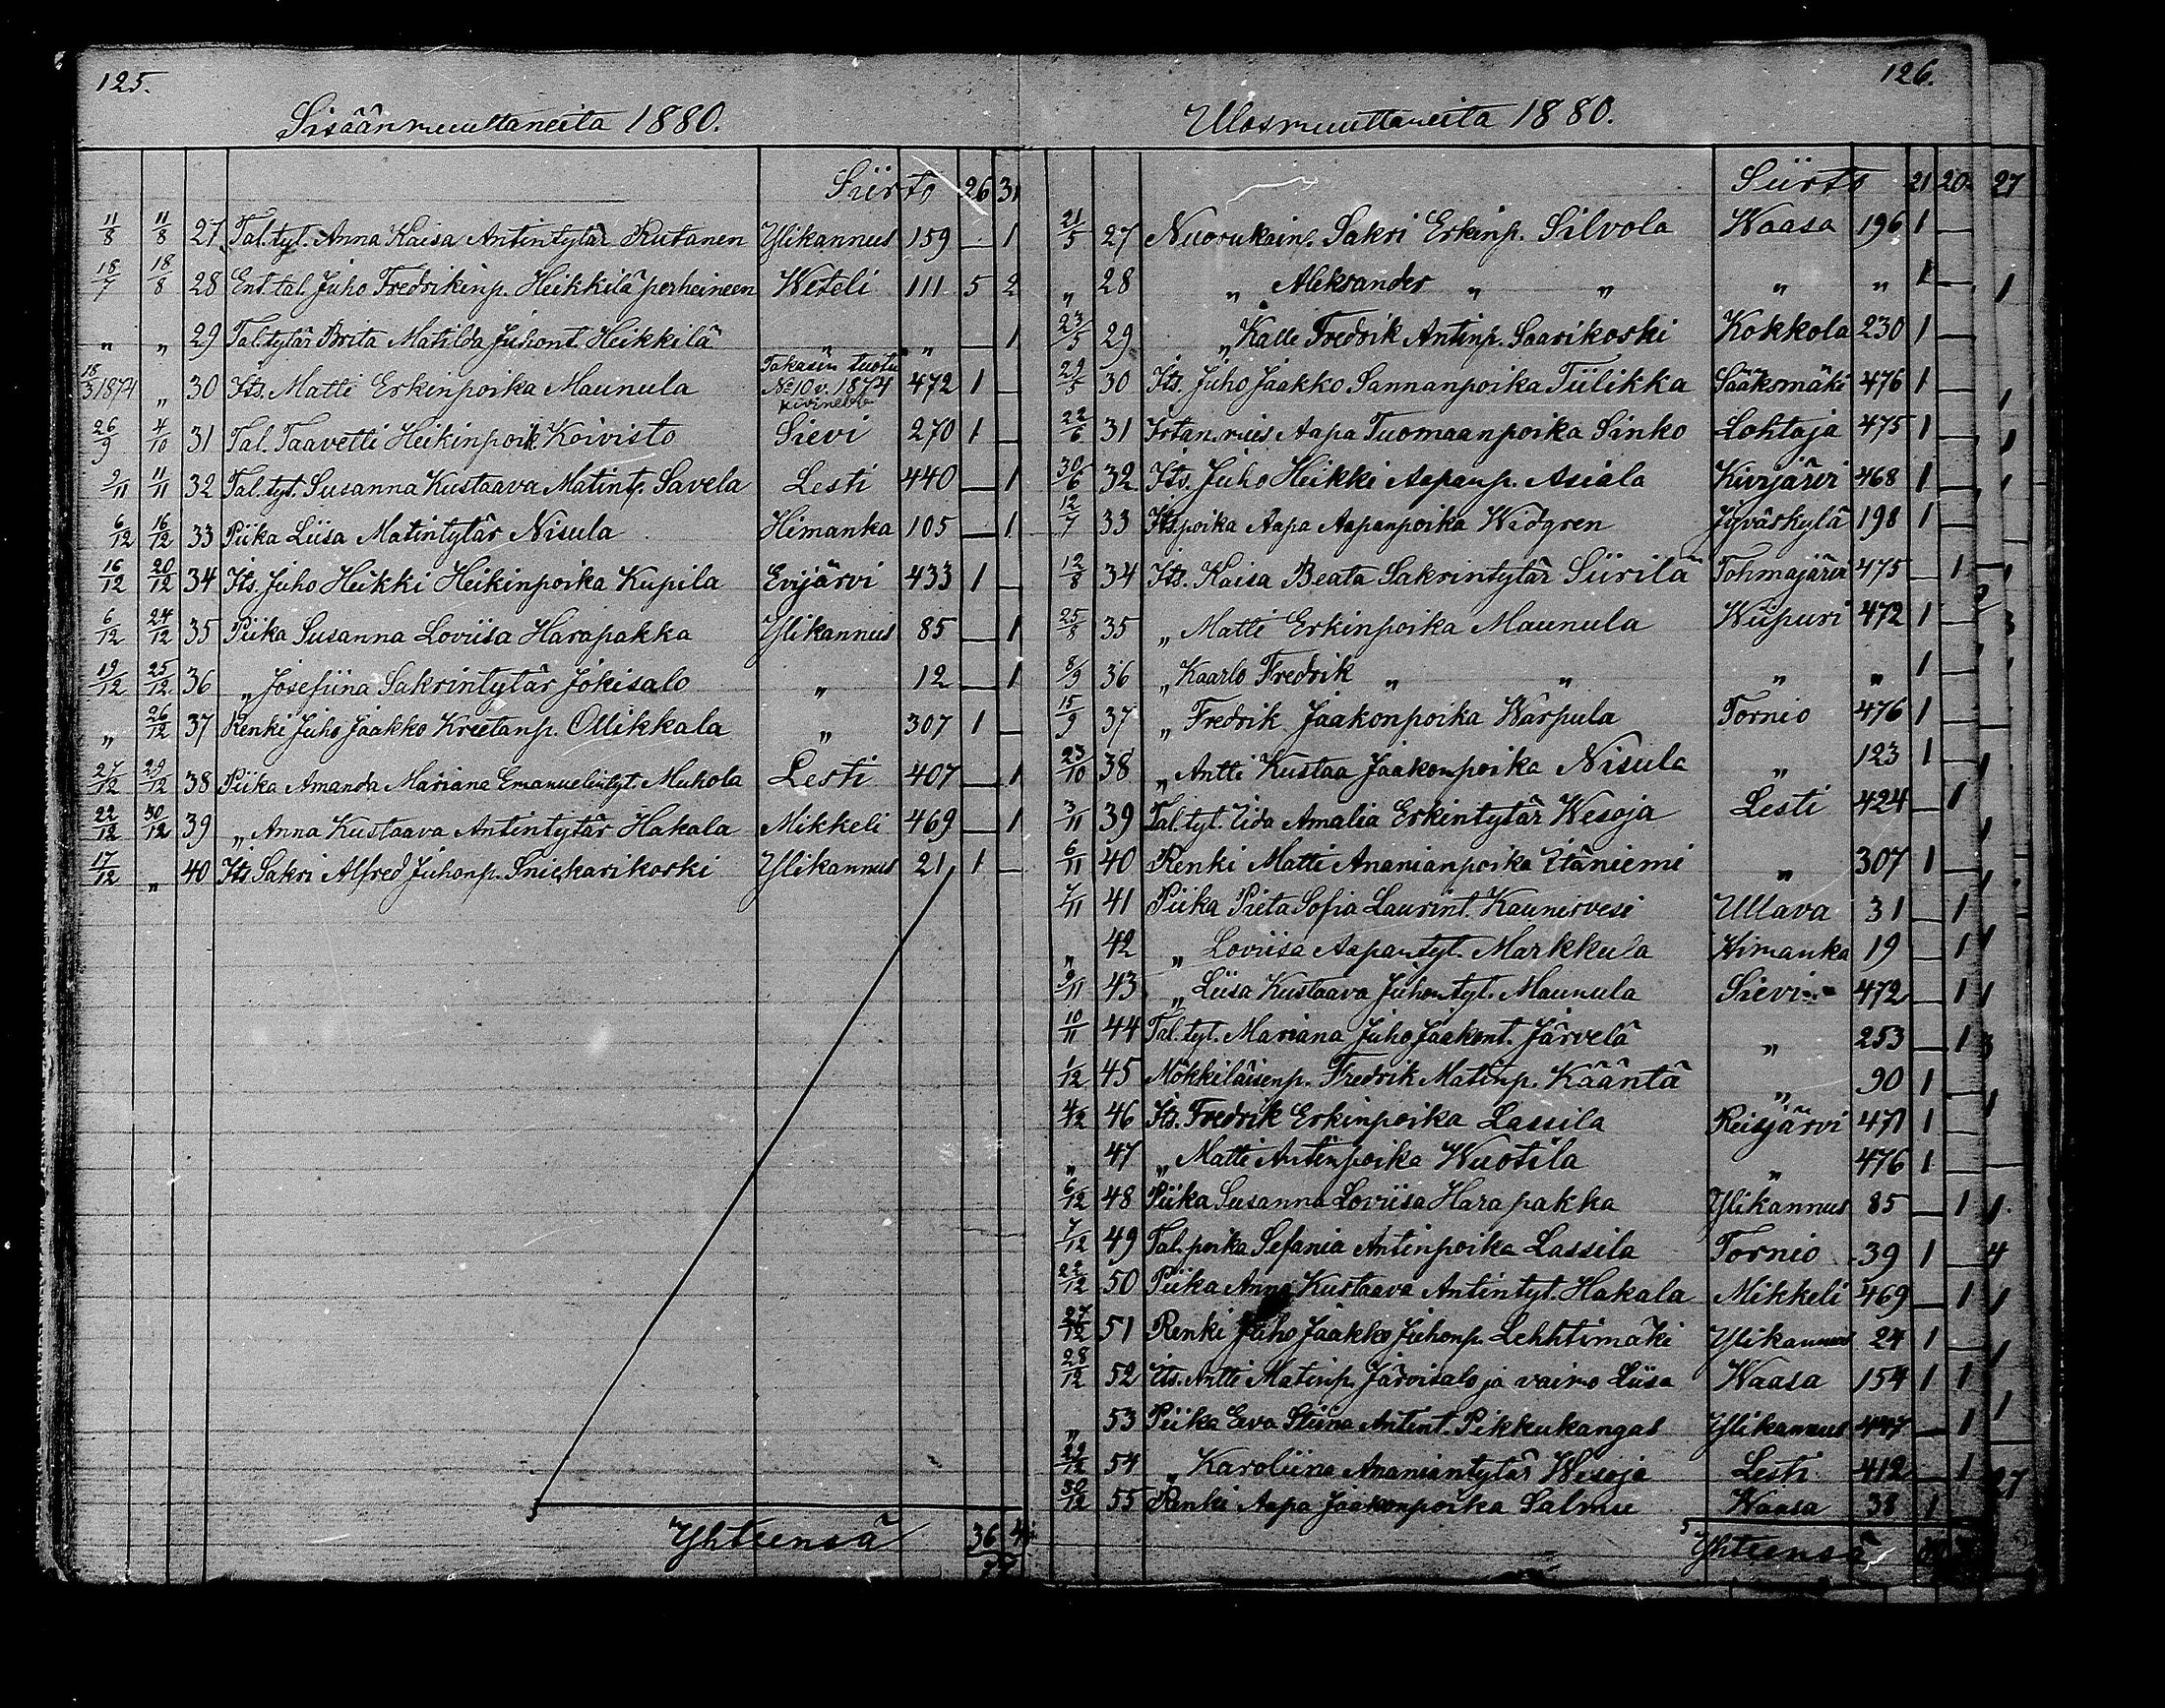 125.
Sisäänmuuttaneita 1880.
Siirto 26 31
11/8 11/8 27 Tal.tyt. Anna Kaisa Antintytär Rutanen Ylikannus 159 — 1
18/7 18/8 28 Ent. tal. Juho Fredrikinp. Heikkilä perheineen Weteli 111 5 2
„ „ 29 Tal.tytär Brita Matilda Juhont. Heikkilä „ „ — 1
18/3 1874 „ 30 Its. Matti Erkinpoika Maunula Takasin tuotu No 10 v. 1874 472 1 —
26/9 4/10 31 Tal. Taavetti Heikinpoik Koivisto Sievi 270 1 —
9/11 11/11 32 Tal.tyt. Susanna Kustaava Matint. Savela Lesti 440 — 1
6/12 16/12 33 Piika Liisa Matintytär Nisula Himanka 105 — 1
16/12 20/12 34 Its. Juho Heikki Heikinpoika Kupila Evijärvi 433 1 —
6/12 24/12 35 Piika Susanna Loviisa Harapakka Ylikannus 85 — 1
19/12 25/12 36 „ Josefiina Sakrintytär Jokisalo „ 12 — 1
„ 26/12 37 Renki Juho Jaakko Kreetanp. Ollikkala „ 307 1 —
27/12 29/12 38 Piika Amanda Mariana Emanuelintyt. Muhola Lesti 407 — 1
22/12 30/12 39 „ Anna Kustaava Antintytär Hakala Mikkeli 469 — 1
17/12 „ 40 Its Sakri Alfred Juhonp. Snickarikoski Ylikannus 21 1 —
Yhteensä 36
126.
Ulosmuuttaneita 1880.
Siirto 21 20 27
21/5 27 Nuorukain. Sakri Erkinp. Silvola Waasa 196 1 —
„ 28 „ Aleksander „ „ „ „ 1 —
23/5 29 „ Kalle Fredrik Antinp. Saarikoski Kokkola 230 1 —
29/5 30 Its. Juho Jaakko Sannanpoika Tiilikka Sääksmäki 476 1 —
22/6 31 Irtan.mies Aapa Tuomaanpoika Sinko Lohtaja 475 1 —
30/6 32 Its. Juho Heikki Aapanp. Asiala Kivijärvi 468 1 —
12/7 33 Its.poika Aapa Aapanpoika Wedgren Jyväskylä 198 1 —
12/8 34 Its. Kaisa Beata Sakrintytär Siirilä Tohmajärvi 475 — 1
25/8 35 „ Matti Erkinpoika Maunula Wiipuri 472 1 —
8/9 36 „ Kaarlo Fredrik „ „ „ „ 1 —
15/9 37 „ Fredrik Jaakonpoika Warpula Tornio 476 1 —
23/10 38 „ Antti Kustaa Jaakonpoika Nisula „ 123 1 —
3/11 39 Tal.tyt. Iida Amalia Erkintytär Wesoja Lesti 424 — 1
6/11 40 Renki Matti Ananianpoika Itäniemi „ 307 1 —
7/11 41 Piika Pieta Sofia Laurint. Kaunisvesi Ullava 31 — 1
„ 42 „ Loviisa Aapantyt. Markkula Himanka 19 — 1
9/11 43 „ Liisa Kustaava Juhontyt. Maunula Sievi 472 — 1
10/11 44 Tal.tyt. Mariana Juho Jaakont. Järvelä „ 253 — 1
1/12 45 Mökkiläisenp. Fredrik Matinp. Kääntä „ 90 1 —
4/12 46 Its. Fredrik Erkinpoika Lassila Reisjärvi 471 1 —
„ 47 „ Matti Antinpoika Wuotila „ 476 1
6/12 48 Piika Susanna Loviisa Harapakka Ylikannus 85 — 1
7/12 49 Tal.poika Sefania Antinpoika Lassila Tornio 39 1 —
22/12 50 Piika Anna Kustaava Antintyt. Hakala Mikkeli 469 — 1
27/12 51 Renki Juho Jaakko Juhonp. Lehhtimäki Ylikannus 24 1 —
28/12 52 Its. Antti Matinp. Järvisalo ja vaimo Liisa Waasa 154 1 1
„ 53 Piika Eeva Stiina Antint. Pikkukangas Ylikannus 447 — 1
29/12 54 „ Karoliina Ananiantytär Wesoja Lesti 412 — 1
30/12 55 Renki Aapa Jaakonpoika Salmu Waasa 38 1
Yhteensä